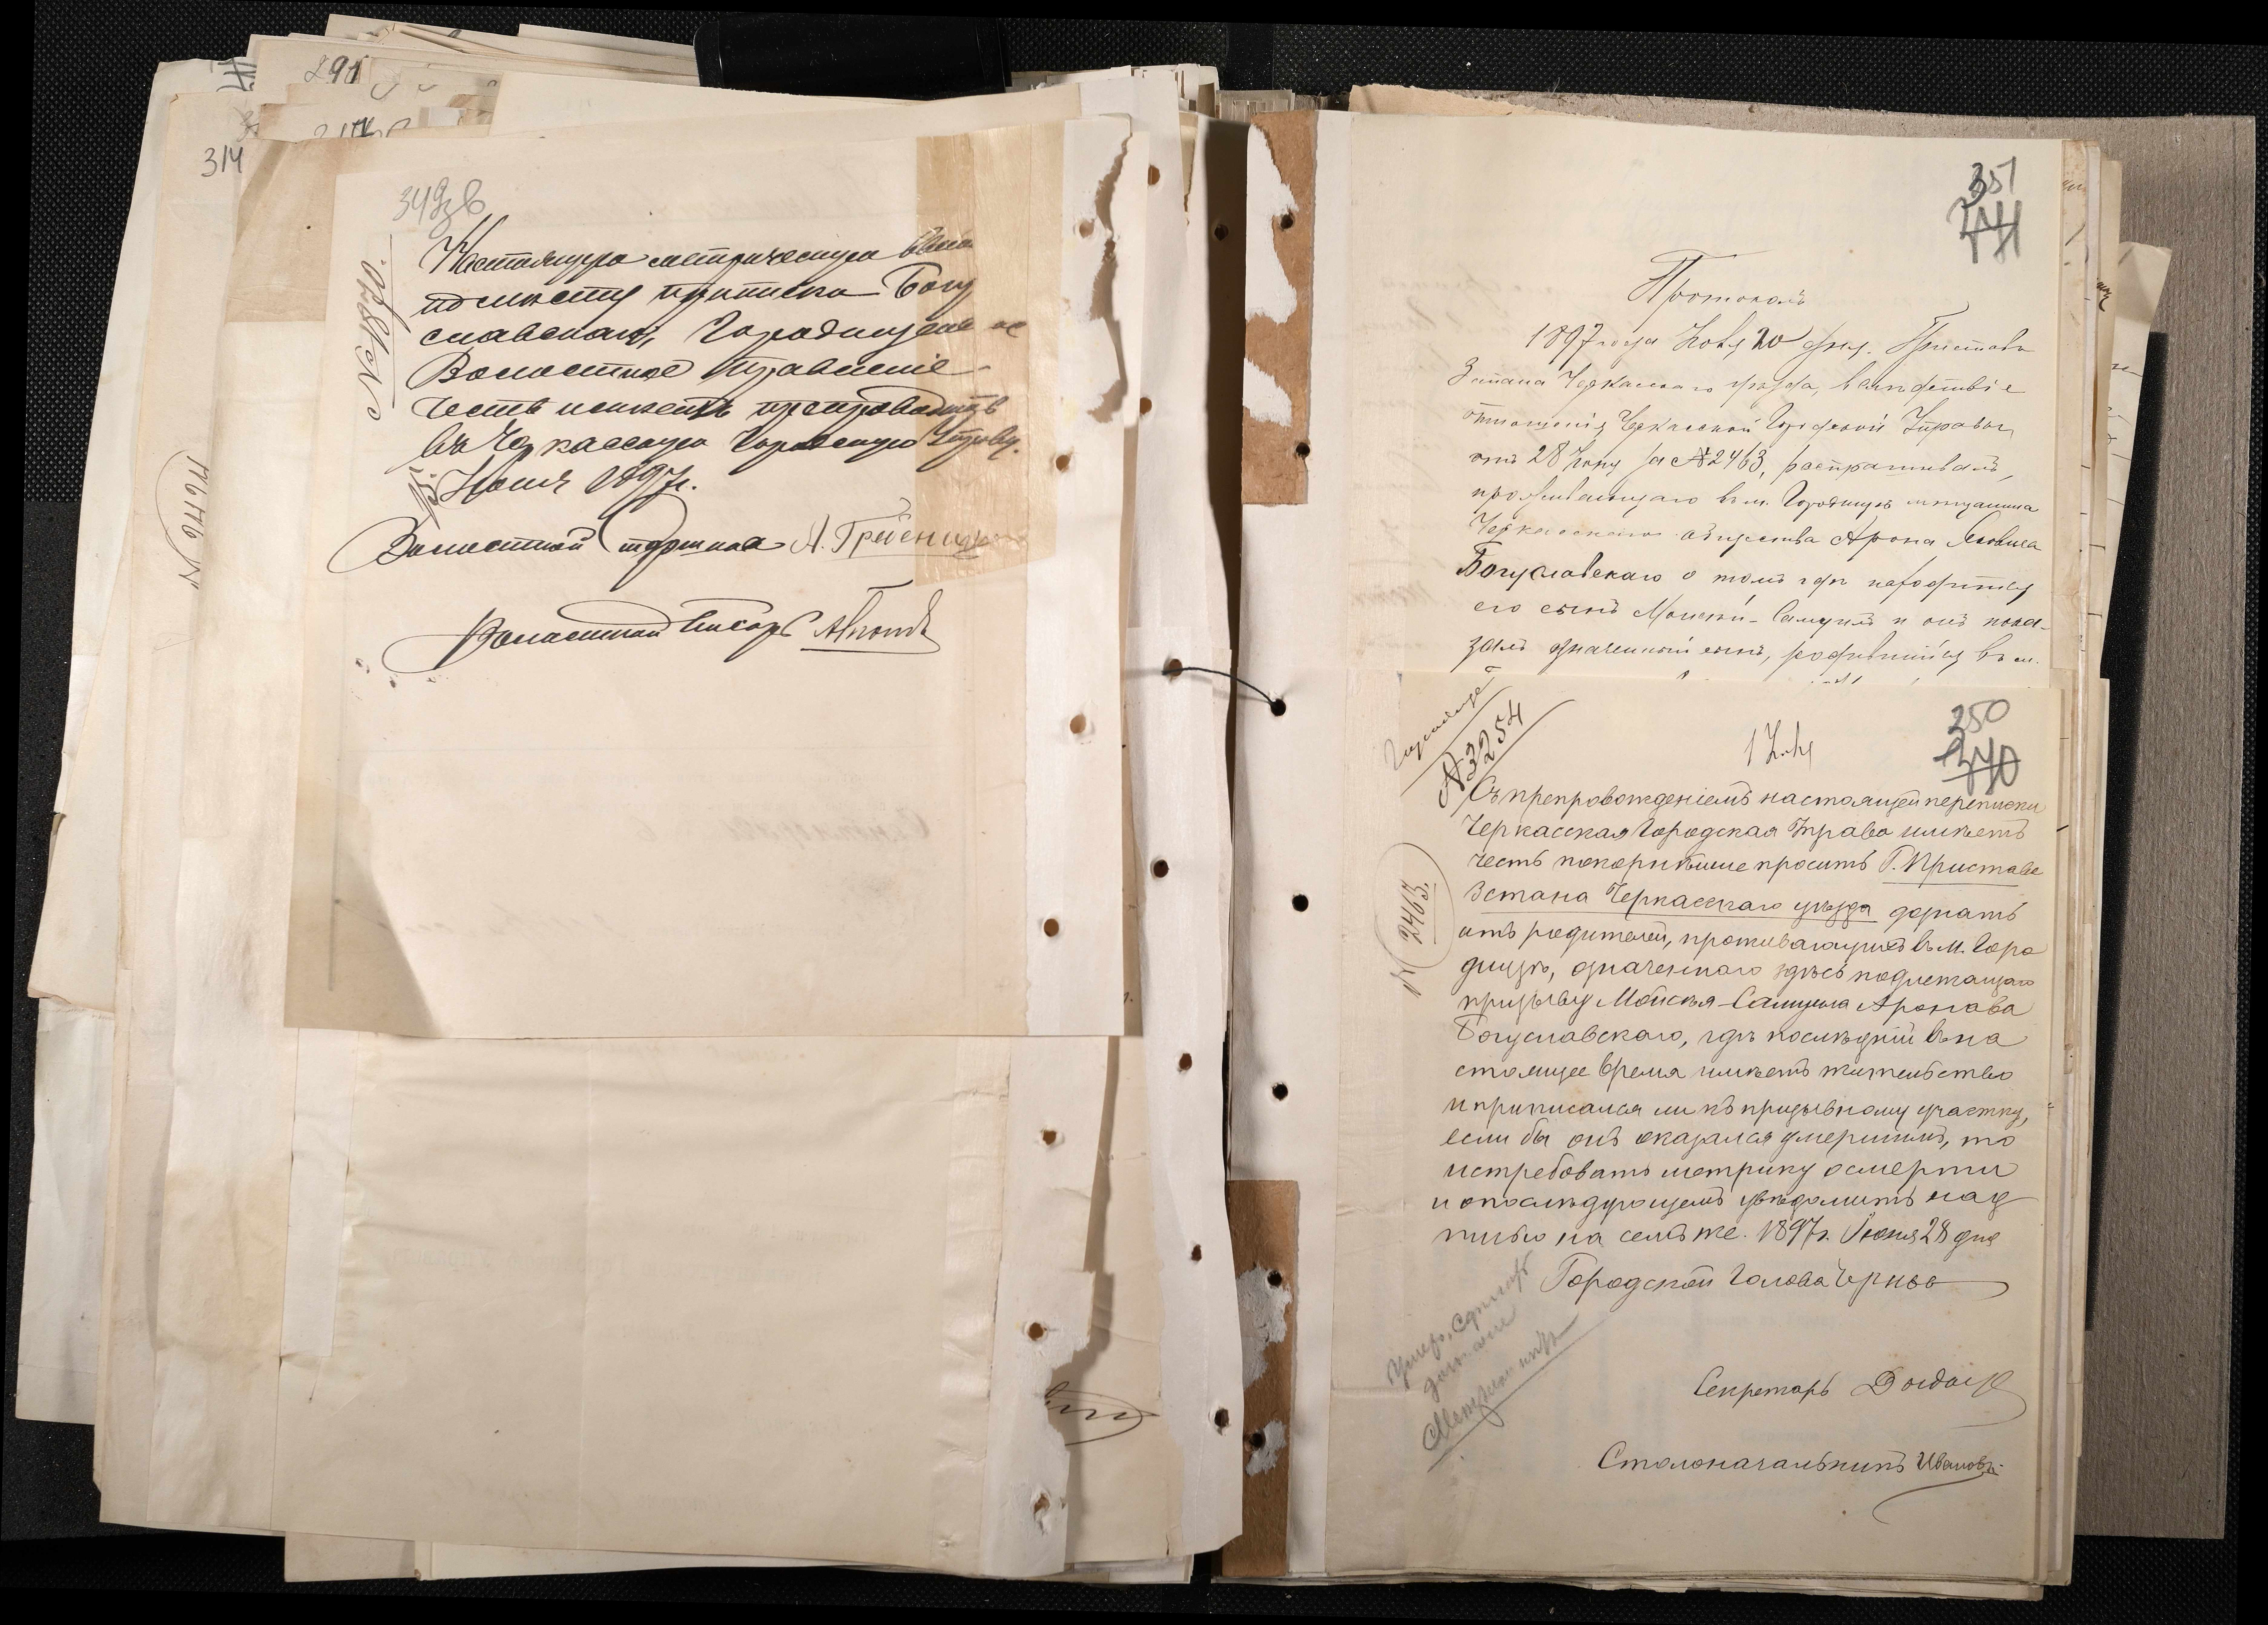 291
314
349об
№ 1870.
Настоящую метрическую выпи
по месту приписки Богу
славскаго, Городищенс ое
Волостное Правленіе
честь имеетъ препроводить
въ Черкасскую Городскую Управу.
15. Іюля 1897 г.
Волостной старшина А.
Волостной Писарь
351
Протоколъ
1897 года Ноя 20 дня. Приставъ
3 стана Черкасскаго уѣзда, вслѣдствіе
отношенія Черкасской Городской Управы,
отъ 28 за № 2463, распрашивалъ,
проживающаго въ м. Городищѣ мѣщанина
Черкасскаго общества Арона
Богуславскаго о томъ гдѣ находится
его сынъ Моисей-Самуилъ и онъ пока-
залъ означенный сынъ, родившійся въ м.
Городище
№ 3254
250
№ 2463.
Съ препровожденіемъ настоящей переписки
Черкасская Городская Управа имѣетъ
честь покорнѣйше просить Г. Пристава
3 стана Черкасскаго уѣзда дознать
отъ родителей, проживающихъ въ м. Горо
дищѣ, означеннаго здѣсь подлежащаго
призыву Мойсея-Самуила Аронова
Богуславскаго, гдѣ послѣдній въ на
стоящее время имѣетъ жительство
и приписался ли къ призывному участку,
если бы онъ оказался умершимъ, то
истребовать метрику о смерти
и о послѣдующемъ увѣдомить над
писью на семъ же. 1897 г. Іюня 28 дня
Городской Голова
Секретарь
Столоначальникъ Ивановъ